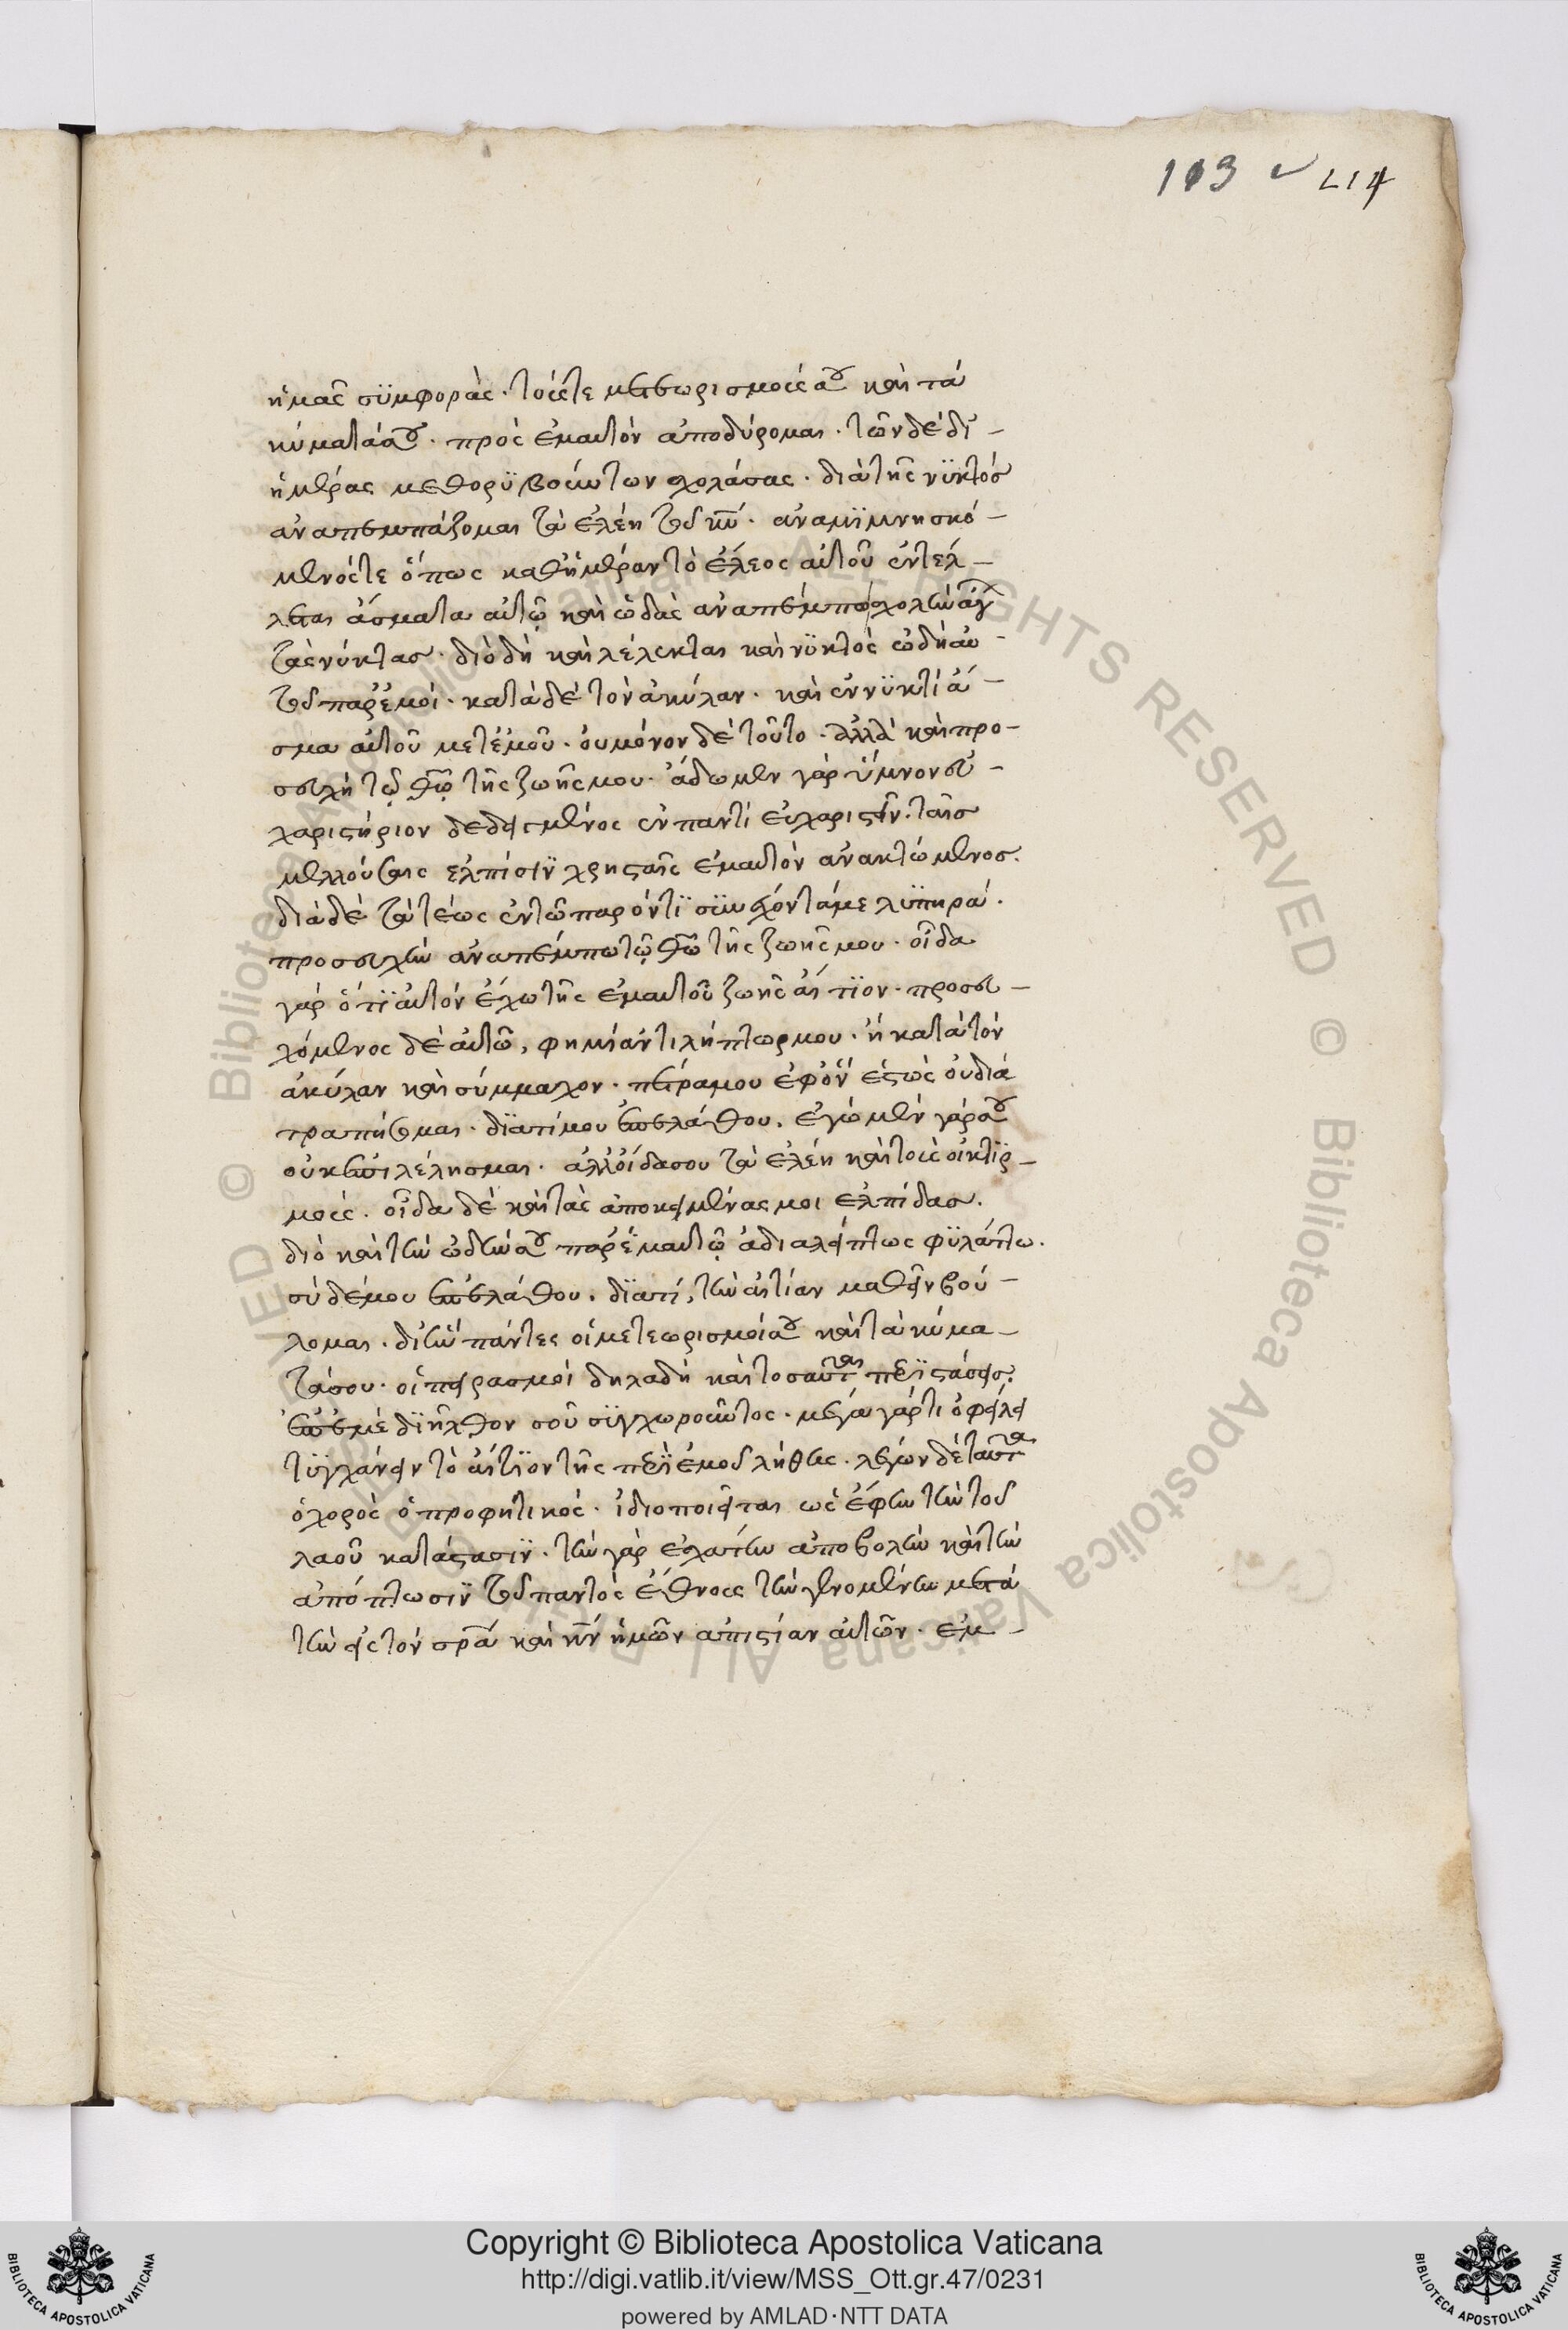 113 L14
ἡμᾶς συμφοράς. τούς τε μετεωρισμούς αου καὶ τὰ
κύματά αου. πρὸς ἐμαυτὸν ἀποδύρομαι. τῶν δὲ δι᾽ -
ἡμέρας με θορυβούντων σχολάσας. διὰ τῆς νυκτὸς
ἀναπεμπάζομαι τὰ ἐλέη τοῦ κυ. ἀναμιμνησκό -
μενός τε ὅπως καθ᾽ ἡμέραν τὸ ἔλεος αὐτοῦ ἐντέλ -
λεται ᾄσματα αὐτῷ καὶ ᾠδὰς ἀναπέμπω σχολὴν
τὰς νύκτας. διὸ δὴ καὶ λέλεκται καὶ νυκτὸς ᾠδὴ αυ -
τοῦ παρ᾽ ἐμοί. κατὰ δὲ τὸν ἀκύλαν. καὶ ἐν νυκτὶ ᾆ -
σμα αὐτοῦ μετ᾽ ἐμοῦ. οὐ μόνον δὲ τοῦτο. ἀλλὰ καὶ προ -
σευχὴ τῷ θῷ τῆς ζωῆς μου. ᾄδω μὲν γὰρ ὕμνον εὐ -
χαριστήριον δεδειγμένος ἐν παντὶ εὐχαριστεῖν. ταῖς
μελλούσαις ἐλπίσιν χρησταῖς ἐμαυτὸν ἀνακτώμενος.
διὰ δὲ τὰ τέως ἐν τῷ παρόντι συνέχοντά με λυπηρά.
προσευχὴν ἀναπέμπω τῷ θῷ τῆς ζωῆς μου. οἶδα
γὰρ ὅτι αὐτὸν ἔχω τῆς ἐμαυτοῦ ζωῆς αἴτιον. προσευ -
χόμενος δὲ αὐτῷ, φημὶ ἀντιλήπτωρ μου. ἢ κατὰ τὸν
ἀκύλαν καὶ σύμμαχον. πέτρα μου ἐφ᾽ ὃν ἑστὼς οὐ δια
τραπήσομαι. διατί μου ἐπελάθου. ἐγὼ μὲν γάρ αου
οὐκ ἐπιλέλησμαι. ἀλλ᾽ οἶδα σου τὰ ἐλέη καὶ τοὺς οἰκτιρ -
μούς. οἶδα δὲ καὶ τὰς ἀποκειμένας μοι ἐλπίδας.
διὸ καὶ τὴν ᾠδήν αου παρ᾽ ἐμαυτῷ ἀδιαλείπτως φυλάττω.
σὺ δέ μου ἐπελάθου. διατί, τὴν αἰτίαν μαθεῖν βού -
λομαι. δι᾽ ἣν πάντες οἱ μετεωρισμοί αου καὶ τὰ κύμα -
τά σου. οἱ πειρασμοὶ δηλαδὴ καὶ τοσαῦται περιστάσεις.
ἐπ᾽ ἐμὲ διῆλθον σοῦ συγχωροῦντος. μέγα γάρ τι ὀφείλει
τυγχάνειν τὸ αἴτιον τῆς περὶ ἐμοῦ λήθης. λέγων δὲ ταῦτα
ὁ χορὸς ὁ προφητικὸς. ἰδιοποιεῖται ὡς ἔφην τὴν τοῦ
λαοῦ κατάστασιν. τὴν γὰρ ἐσχάτην ἀποβολὴν καὶ τὴν
ἀπόπτωσιν τοῦ παντὸς ἔθνους τὴν γενομένην μετὰ
τὴν εἰς τὸν σρα καὶ κν ἡμῶν ἀπιστίαν αὐτῶν. ἐμ -
Copyright © Biblioteca Apostolica Vaticana
http://digi.vatlib.it/view/MSS_Ott.gr.47/0231
powered by AMLAD·NTT DATA